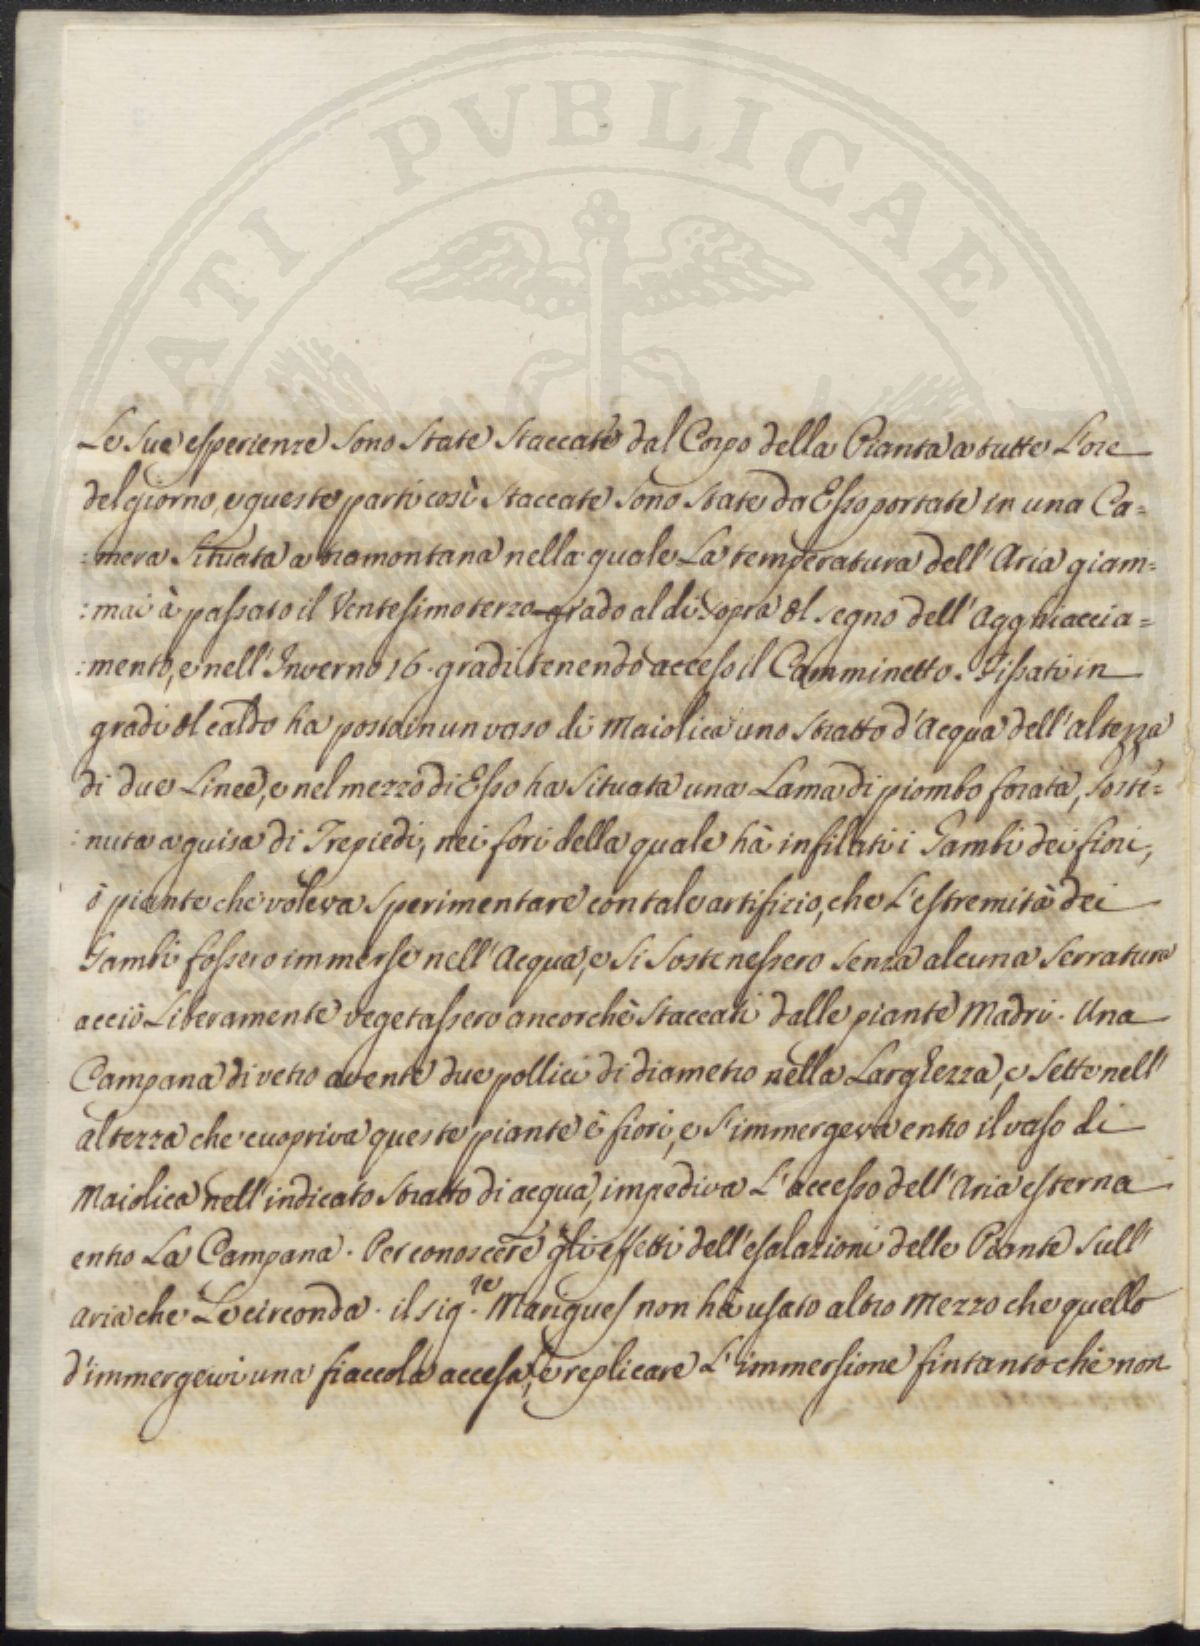 ATI PVBLICAE
Le sue esperienze sono state staccate dal Corpo della Pianta a tutte L'ore
del giorno, e queste parti così staccate sono state da Esso portate in una Ca=
:mera situata a tramontana nella quale La temperatura dell'Aria giam=
:mai à passato il Ventesimoterzo grado al di sopra del segno dell'Agghiaccia=
:mento, e nell'Inverno 16. gradi tenendo acceso il Camminetto. Fissati in
gradi del caldo ha posto in un vaso di Maiolica uno stratto d'Acqua dell'altezza
di due Linee, e nel mezzo di Esso ha situata una Lama di piombo forata, soste=
:nuta a guisa di Trepiedi, nei fori della quale hà infilati i Gambi dei fiori,
ò piante che voleva sperimentare con tale artifizio, che L'estremità dei
Gambi fossero immerse nell'Acqua, e si sostenessero senza alcuna serratura
acciò Liberamente vegetassero ancorchè staccati dalle piante Madri. Una
Campana di vetro avente due pollici di diametro nella Larghezza, e sette nell'
altezza che cuopriva queste piante è fiori, e s'immergeva entro il vaso di
Maiolica nell'indicato stratto di acqua, impediva L'accesso dell'Aria esterna
entro La Campana. Per conoscere gli effetti dell'esalazioni delle Piante sull'
Aria che Le circonda. il sig.re Marigues non hà usato altro Mezzo che quello
d'immergervi una fiaccola accesa, e replicare L'immersione fintantochè non